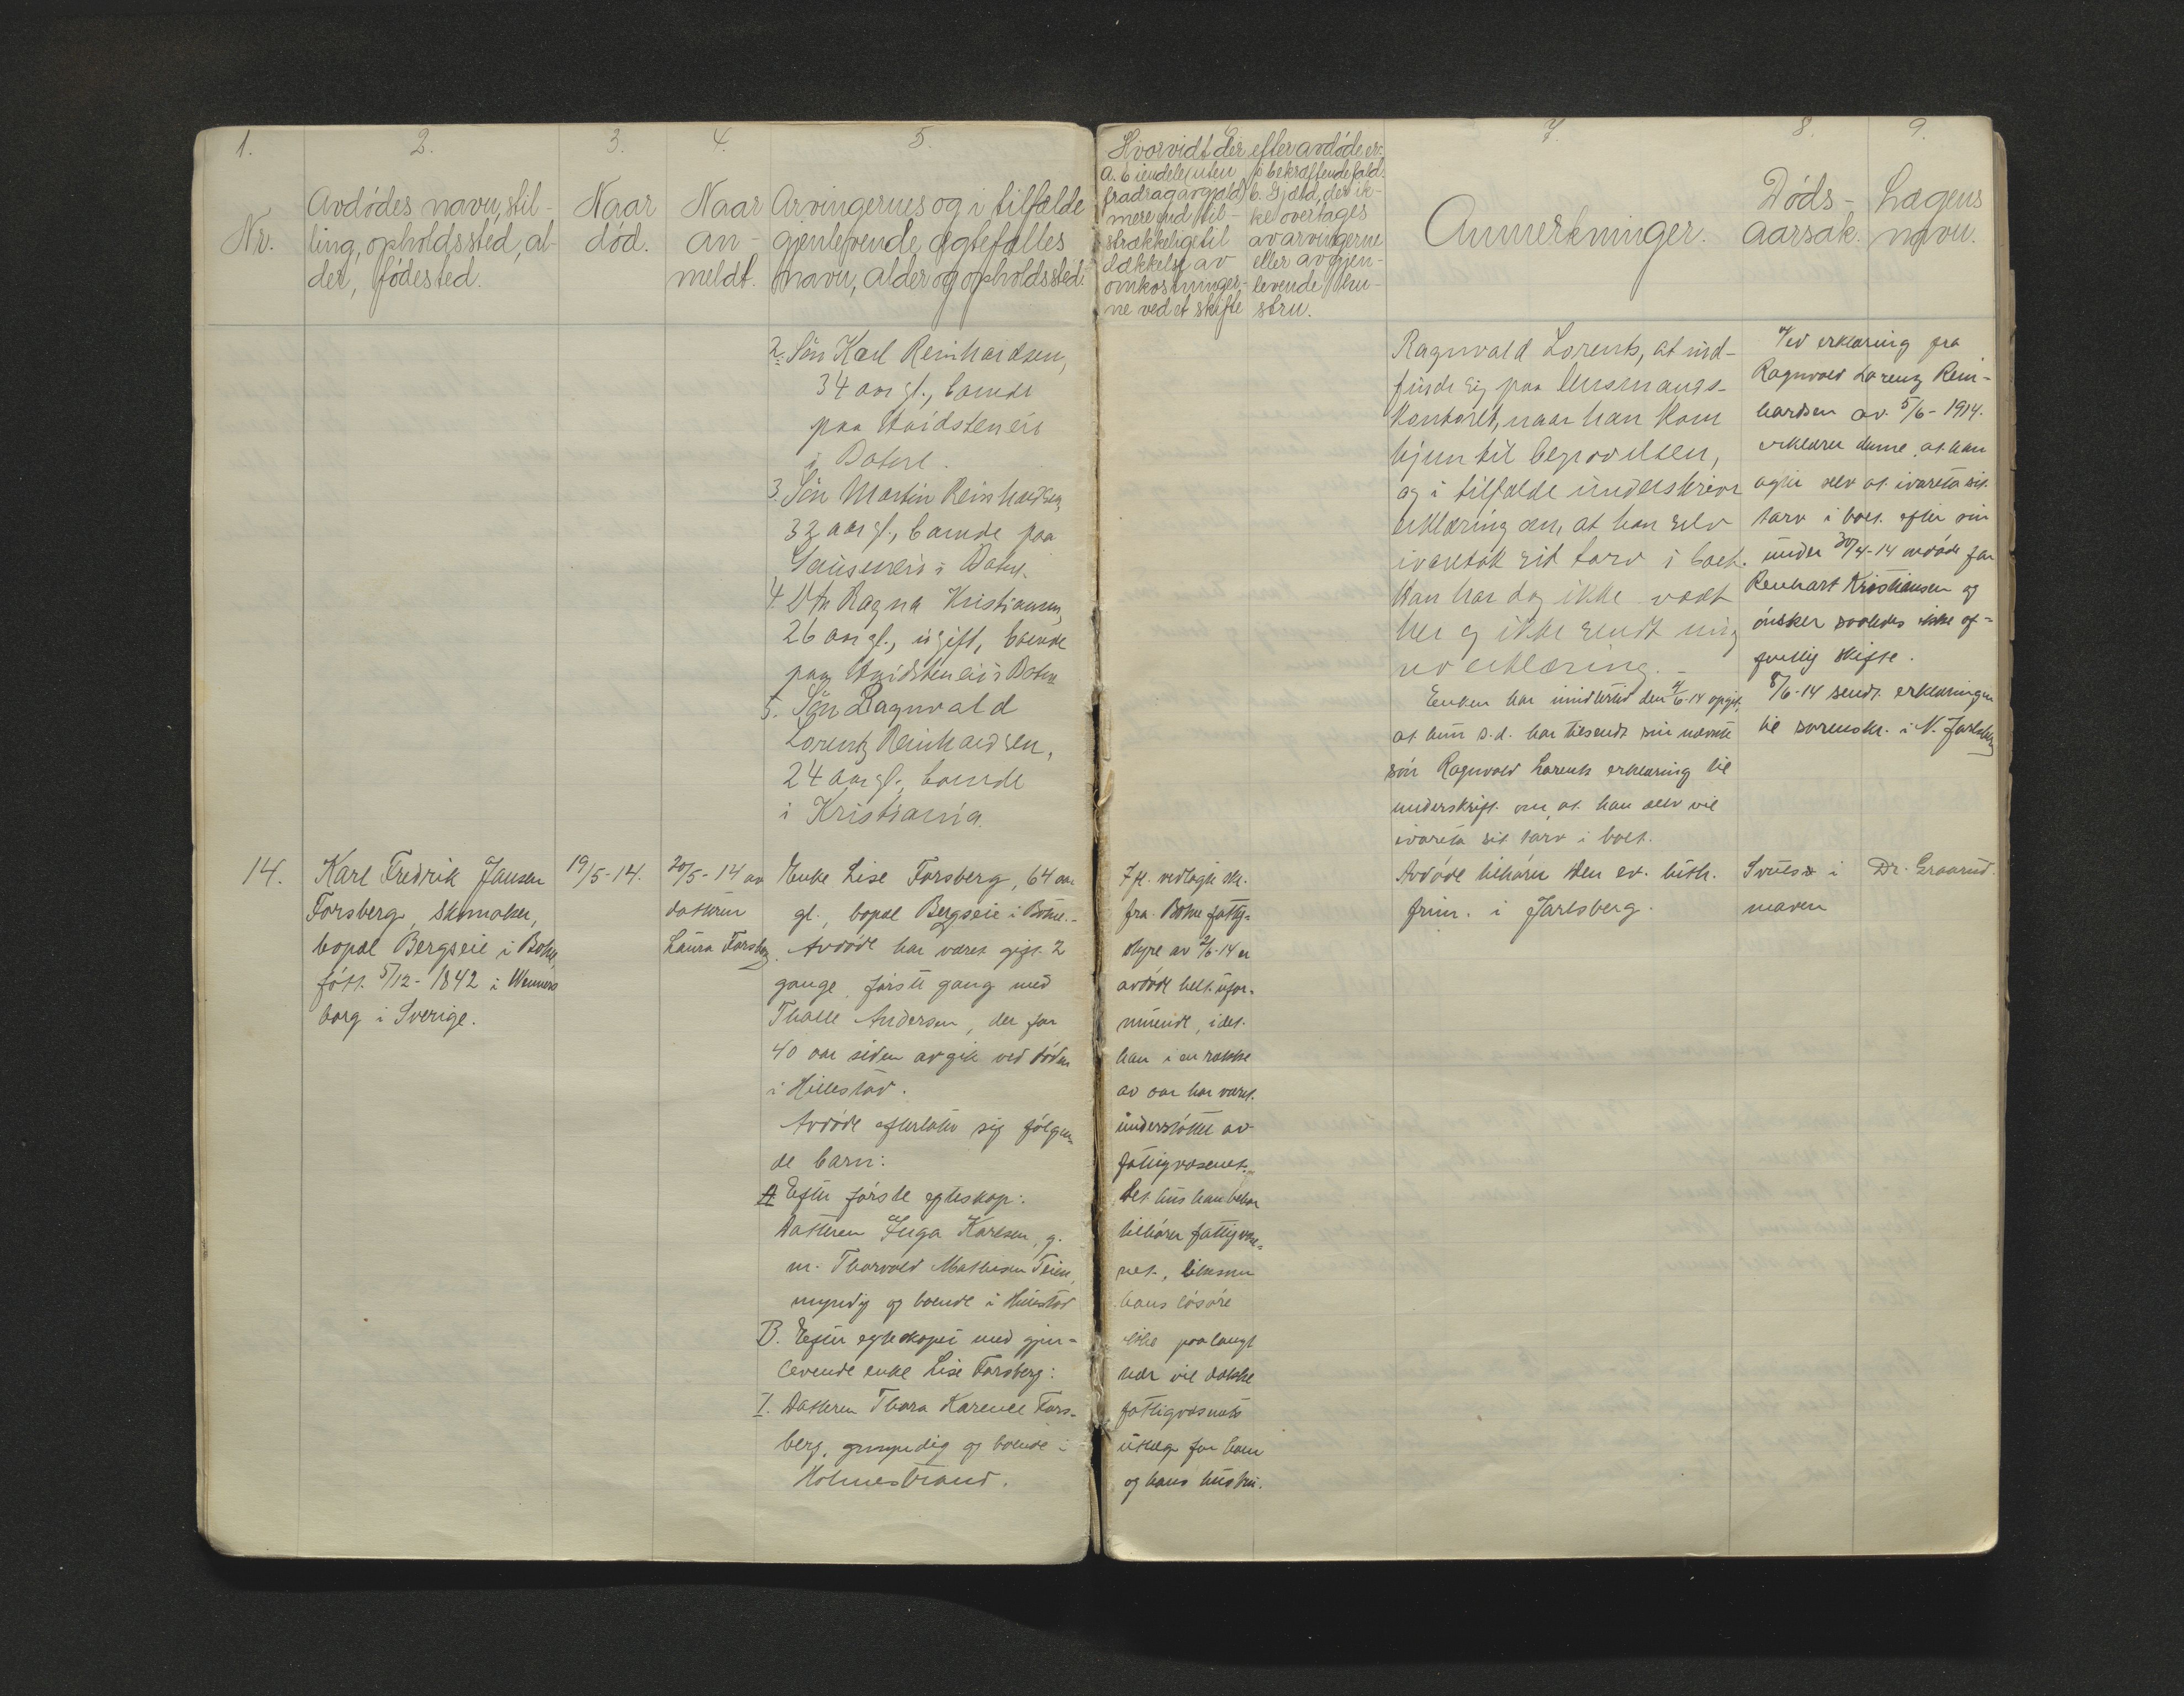 1.
2.
3.
4.
5.
Nr.
Avdødes navn, stil-
ling, opholdssted, al-
der, fødested.
Naar
død.
Naar
an-
meldt.
Arvingernes og i tilfælde
gjenlevende ægtefælles
navn, alder og opholdssted.
2. Søn Karl Reinhardsen,
34 aar gl., boende
paa
i Botne.
3. Søn Martin Reinhardsen,
32 aar gl., boende paa
i Botne.
4. Dtr. Ragna Kristiansen,
26 aar gl., ugift, boende
paa i Botne
5. Søn Ragnvald
Lorentz Reinhardsen,
24 aar gl., boende
i Kristiania.
14.
Karl Fredrik Jansen
Forsberg, skomaker,
bopæl Bergseie i Botne,
født 5/12-1842 i Wenners
borg i Sverige.
19/5-14.
20/5-14 av
datteren
Laura Forsberg.
Enke Lise Forsberg, 64 aar
gl., bopæl Bergseie i Botne.-
Avdøde har været gift 2
gange, første gang med
Thalle Andersen, der for
40 aar siden avgik ved døden
i Hillestad.
Avdøde efterlater sig følgen-
de barn:
A Efter første egteskap:
Datteren Inga Karlsen, g.
m. Thorvald Mathisen Teien,
myndig og boende i Hillestad
B. Efter egteskapet med gjen-
levende enke Lise Forsberg:
I. Datteren Thora Karence Fors-
berg, myndig og boende i
Holmestrand.
6.
7.
8.
9.
Hvorvidt der efter avdøde er:
a. eiendele (uten
fradrag av gjæld)
mere end til-
strækkelige til
dækkelse av
omkostninger-
ne ved et skifte
i bekræftende fald:
b. Gjæld, der ik-
ke overtages
av arvingerne
eller av gjen-
levende hu-
stru.
Anmerkninger.
Døds-
aarsak.
Lægens
navn.
Ragnvald Lorents, at ind-
finde sig paa lensmands-
kontoret, naar han kom
hjem til begravelsen,
og i tilfælde underskrive
erklæring om, at han selv
ivaretok sit tarv i boet.
Han har dog ikke vært
her og ikke sendt mig
nu erklæring. -
Enken har imidlertid den 4/6-14 opgit,
at hun s.d. har tilsendt sin nævnte
søn Ragnvald Lorents erklæring til
underskrift om, at han selv vil
ivareta sit tarv i boet.
Ved erklæring fra
Ragnvald Lorentz Rein-
hardsen av 5/6-1914.
erklærer denne, at han
agter selv at ivareta sit
tarv i boet efter sin
under 30/4-14 avdøde far
Reinhart Kristiansen og
ønsker saaledes ikke of-
fentlig skifte.
8/6-14 sendt erklæringen
til sorenskr. i N. Jarlsberg
Ifl. vedlagte skr.
fra Botne fattig-
styre av 2/6-14 er
avdøde helt ufor-
muende, idet
han i en række
av aar har været
understøttet av
fattigvæsenet.
Det hus han bebor
tilhører fattigvæse-
net, likesom
hans løsøre
ikke paalangt
nær vil dække
fattigvæsenets
utlæg for ham
og hans hustru.
Avdøde tilhører den ev. luth.
frim. i Jarlsberg.
Svulst i
maven
Dr. Graarud.